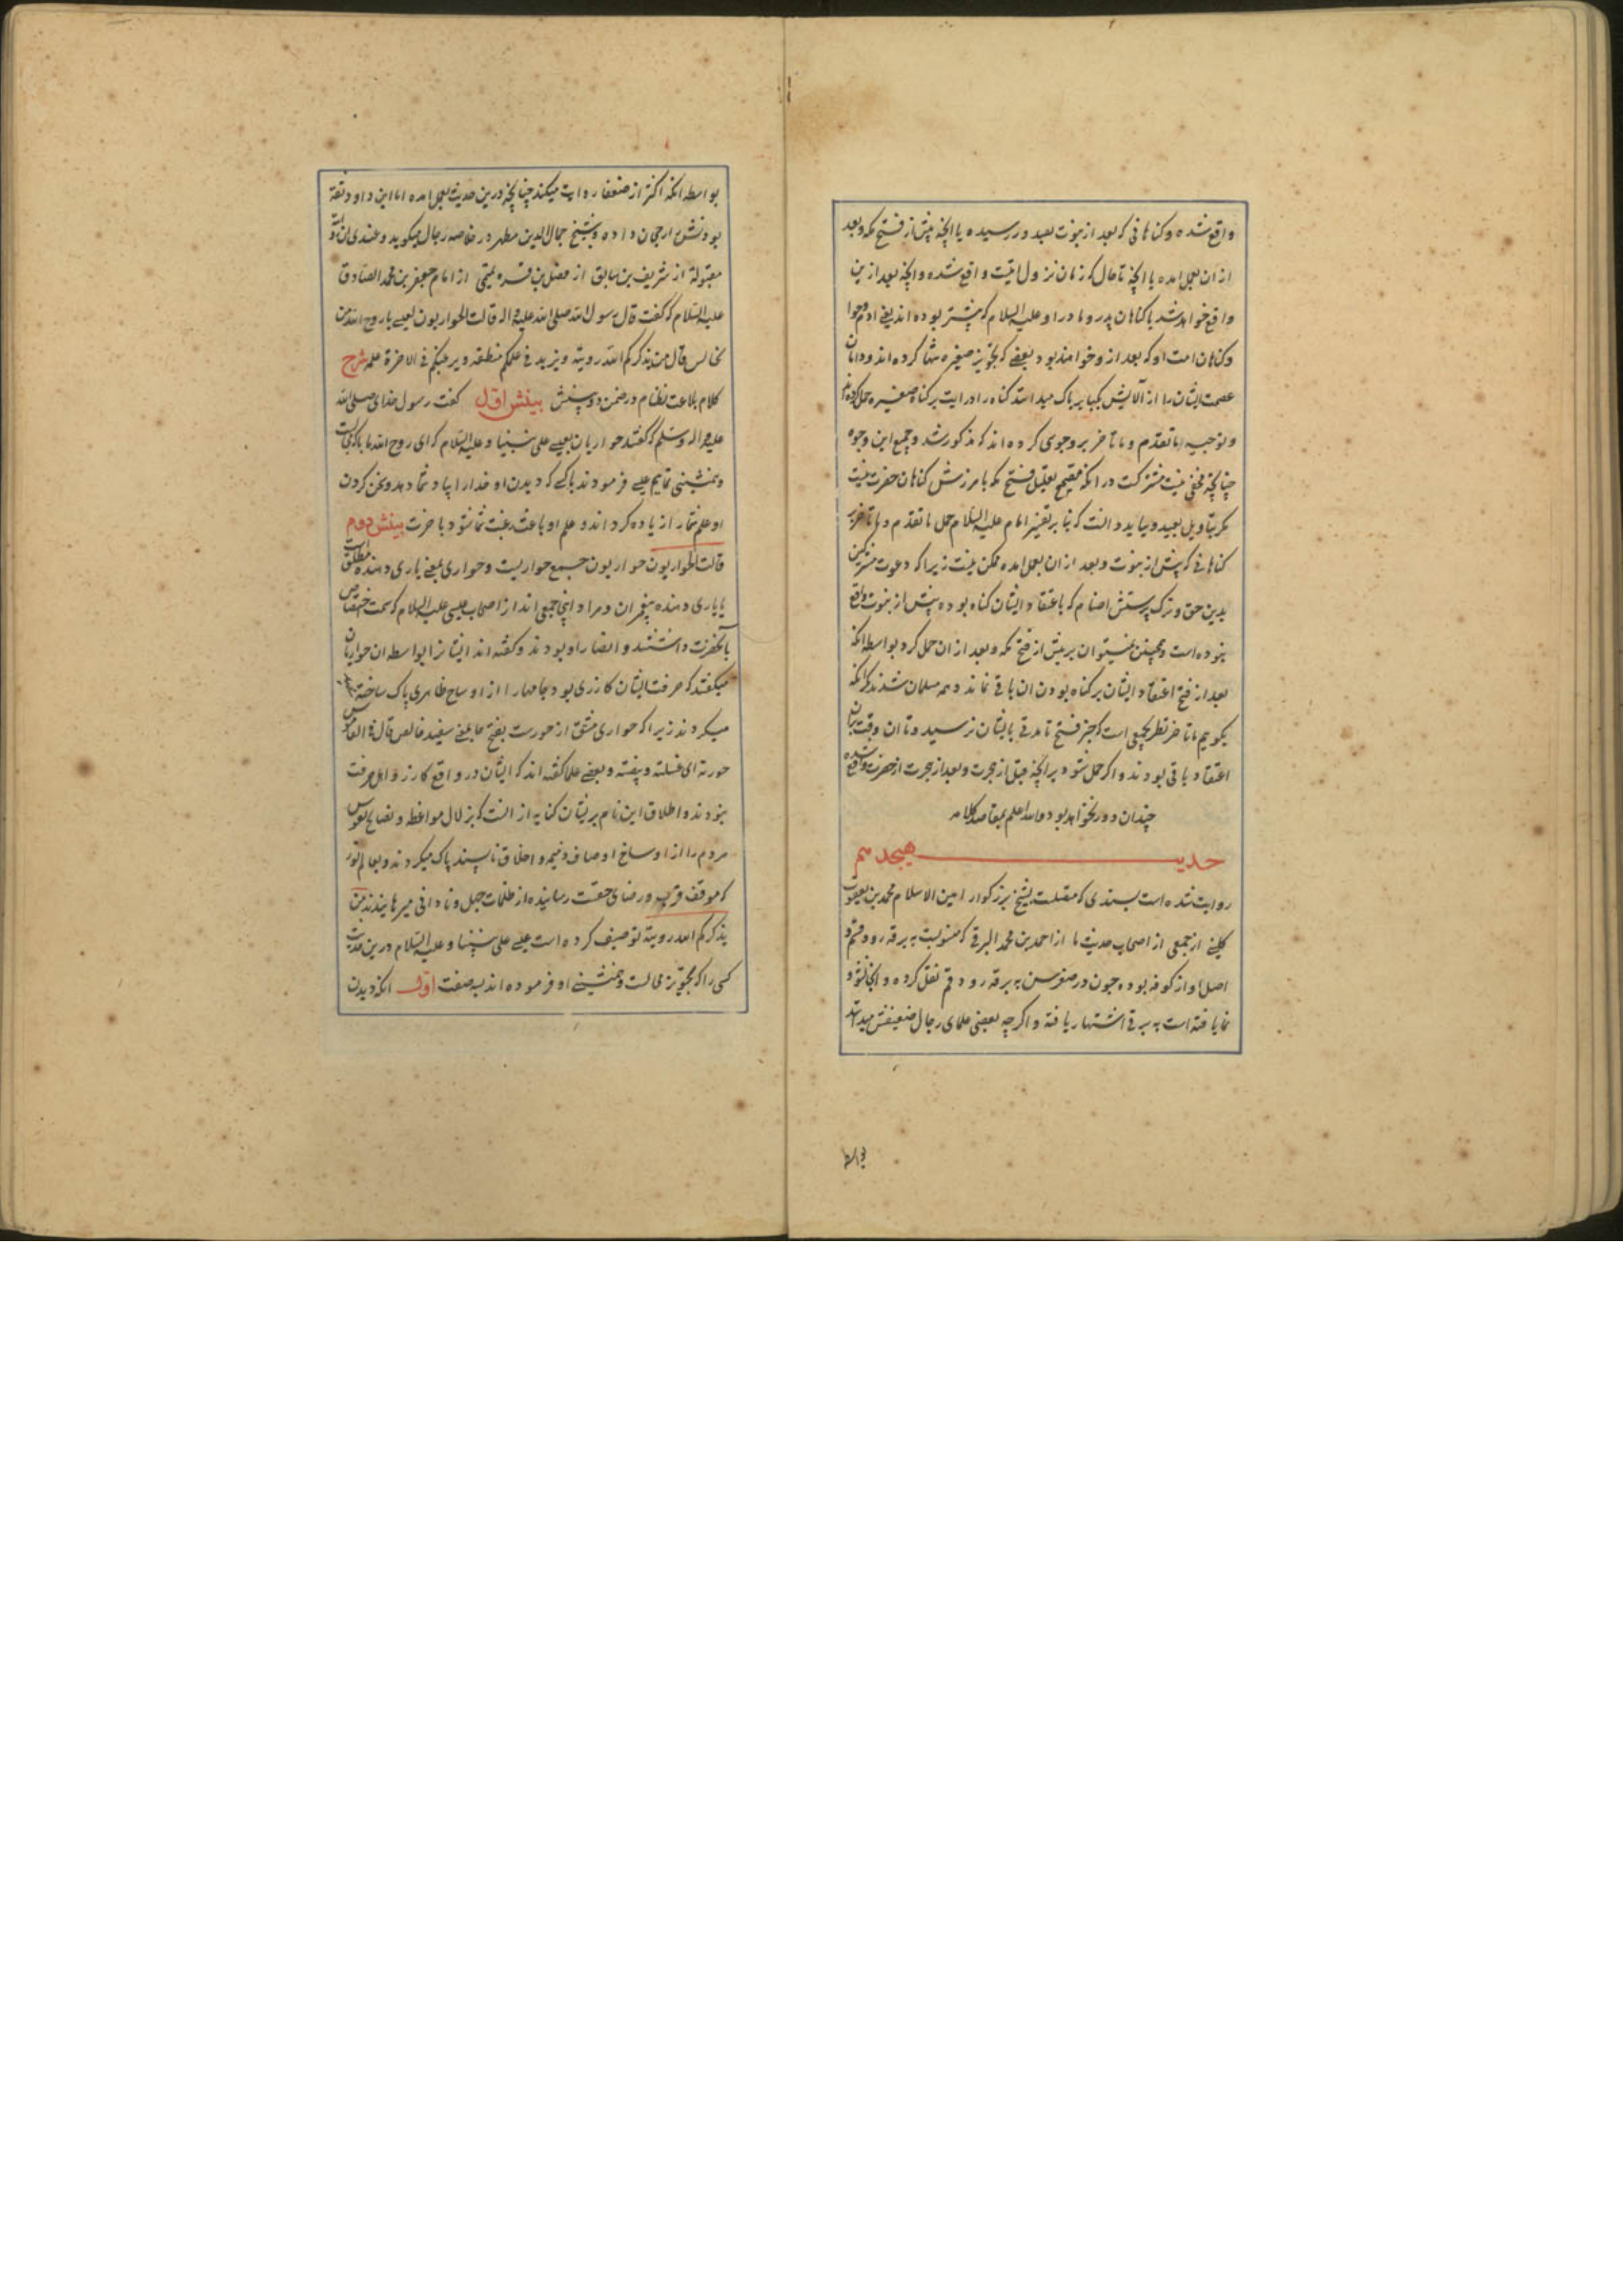 واقع شده و کناهانی که بعد از نبوت بعید در رسیده یا انچه پیش از فتح مکه و بعد
از ان بعمل امده یا انچه تا حال که زمان نزول ایتست واقع شده و انچه بعد ازین
واقع خواهد شد یا کناهان پدر و مادر او علیه السلام که پیشتر بوده اند یعنی ادم و حوا
و کناهان امت او که بعد از و خواهند بود و بعضی که تجویز صغیره شما کرده اند و دامان
عصمت ایشان را از آلایش بکبایر پاک میدانند کناه را در ایت بر کناه صغیره حمل کرده اند
و توجیه ما تقدم و ما تاخر بر وجوی کرده اند که مذکور شد و جمیع این وجوه
چنانچه مخفی نیست مشترکست در انکه تعلیل فتح مکه بامرزش کناهان حضرت نیست
مکر بتاویل بعید و بباید دانست که بنا بر تفسیر امام علیه السلام حمل ما تقدم و ما تاخر بر
کناهانی که پیش از نبوت و بعد از ان بعمل امده ممکن نیست زیرا که دعوت مشرکین
بدین حق و ترک پرستش اصنام که باعتقاد ایشان کناه بوده پیش از نبوت واقع
نبوده است و همچنین نمیتوان بر پیش از فتح مکه و بعد از ان حمل کرد بواسطه انکه
بعد از فتح اعتقاد ایشان بر کناه بودن ان باقی نماند و همه مسلمان شدند مکر انکه
بکوییم ما تاخر نظر بجمعی است که خبر فتح تا مدتی بایشان نرسید و تا ان وقت بران
اعتقاد باقی بودند و اکر حمل شود بر انچه قبل از هجرت و بعد از هجرت از حضرت واقع شده
چندان دور نخواهد بود والله اعلم بمقاصد کلامه
حدیث هیجدهم
روایت شده است بسندی که متصلست بشیخ بزرکوار امین الاسلام محمد بن یعقوب
کلینی از جمعی از اصحاب حدیث ما از احمد بن محمد البرقی که منسوبست به برقه رود قم و
اصل او از کوفه بوده چون در صغر سن به برقه رود قم نقل کرده و انجا نشو و
نما یافته است به برقی اشتهار یافته و اکرچه بعضی علمای رجال ضعیفش میدانند
بواسطه انکه اکثر از ضعفا روایت میکند چنانچه درین حدیث بعمل امده اما ابن داود ثقه
بودنش رجحان داده و شیخ جمال الدین مطهر در خلاصه رجال میکوید و عندی ان روایته
مقبولة از شریف بن سابق از فضل بن قره تمیمی از امام جعفر بن محمد الصادق
علیه السلام که کفت قال رسول الله صلی الله علیه واله قالت الحواریون لعیسی یا روح الله من
نجالس قال من یذکرکم الله رویته ویزید فی علمکم منطقه ویرغبکم فی الاخرة علمه شرح
کلام بلاغت نظام در ضمن دو بینش بینش اول کفت رسول خدای صلی الله
علیه واله وسلم که کفتند حواریان بعیسی علی نبینا و علیه السلام که ای روح الله ما با که مجالست
و همنشینی نماییم عیسی فرمودند با کسی که دیدن او خدا را بیاد شما دهد و سخن کردن
او علم شما را زیاده کرداند و علم او باعث رغبت شما شود باخرت بینش دوم
قالت الحواریون حواریون جمع حواریست و حواری بمعنی یاری دهنده مطلق است
یا یاری دهنده پیغمبران و مراد اینجا جمعی اند از اصحاب عیسی علیه السلام که سمت اختصاص
بآنحضرت داشتند و انصار او بودند و کفته اند ایشانرا بواسطه ان حواریان
میکفتند که حرفت ایشان کازری بود و جامها را از اوساخ ظاهری پاک ساخته
میکردند زیرا که حواری مشتق از حورست بفتح حا بمعنی سفید خالص قال فی القاموس
حورته ای غسلته و بیضته و بعضی علما کفته اند که ایشان در واقع کازر و اهل حرفت
نبودند و اطلاق این نام بریشان کنایه از انست که بزلال مواعظ و نصایح نفوس
مردم را از اوساخ اوصاف ذمیمه و اخلاق ناپسند پاک میکردند و بعالم نور
که موقف قرب و رضای حقست رسانیده از ظلمات جهل و نادانی میرهانیدند من
یذکرکم الله رویته توصیف کرده است عیسی علی نبینا و علیه السلام درین حدیث
کسی را که تجویز مجالست و همنشینی او فرموده اند بسه صفت اول انکه دیدن